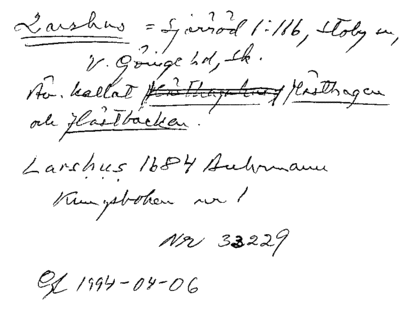 Larshus = Sjöröd 1:116, Stoby sn,
V. Göinge hd, Sk.
Äv. kallat Hästhagen
och Hästbacken.
Larshus 1684 Ankrmann
Kungsboken nr 1
NR 33229
1994-04-06